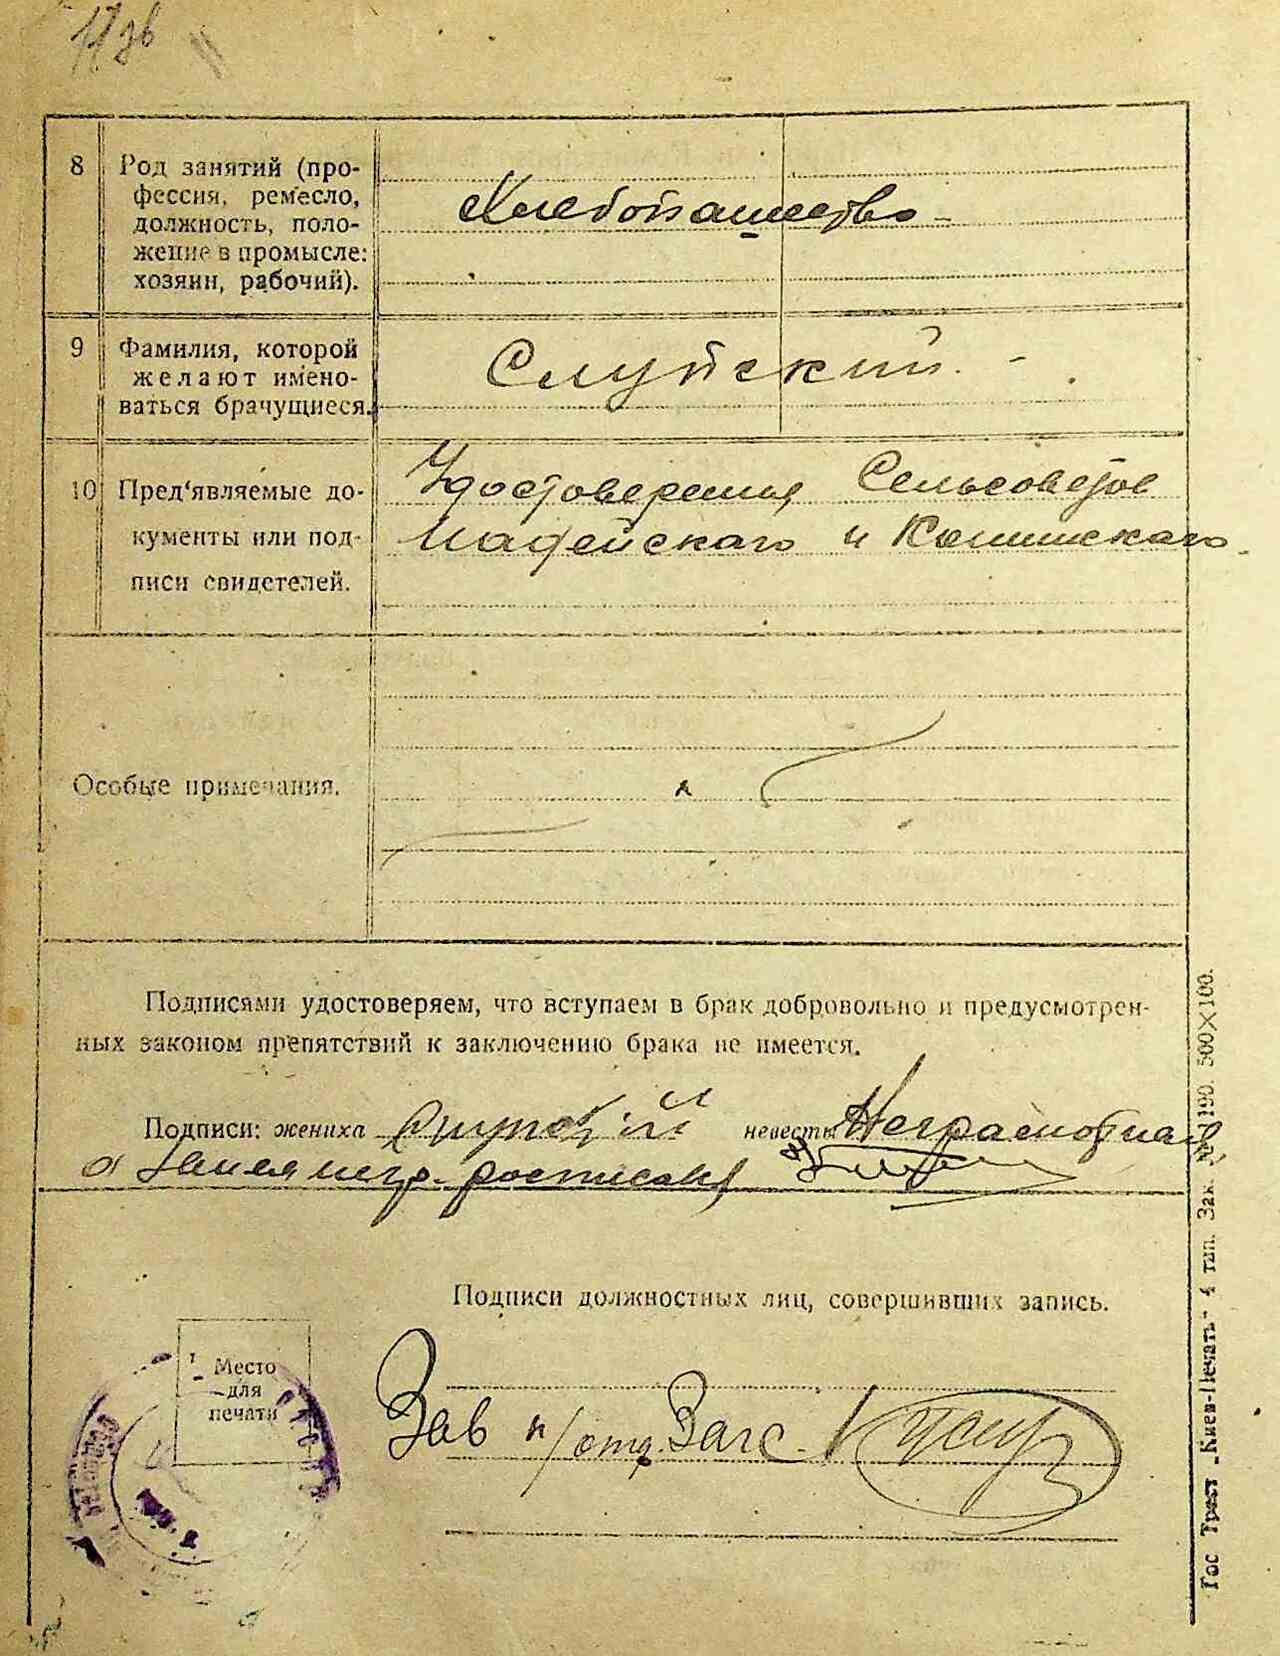 8 Род занятий (про-
фессия, ремесло,
должность, поло-
жение в промысле:
хозяин, рабочий).
Хлебопашество
9 Фамилия, которой
желают имено-
ваться брачущиеся.
Слупский.
10 Пред‘являемые до-
кументы или под-
писи свидетелей.
Удостоверения Сельсоветов
и
Особые примечания.
Подписями удостоверяем, что вступаем в брак добровольно и предусмотрен-
ных законом препятствий к заключению брака не имеется.
Подписи: жениха невесты Неграмотная
Подписи должностных лиц, совершивших запись.
Место
для
печати
Зав п/отд. Загс.
Гос Трест „Киев-Печать“ 4 тип. Зак. 500X100.